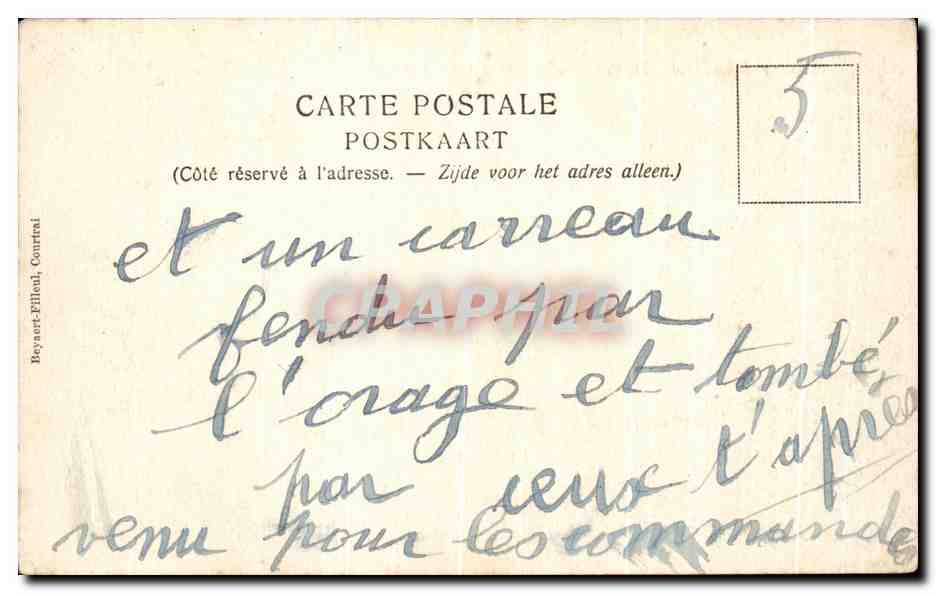 CARTE POSTALE
POSTKAART
(Côté réservé à l'adresse. — Zijde voor het adres alleen.)
5
Beyaert-Filleul, Courtrai
et un carreau
fendu par
l'orage et tombé,
par ceux t'après
venu pour les commandes
CRAPHIL